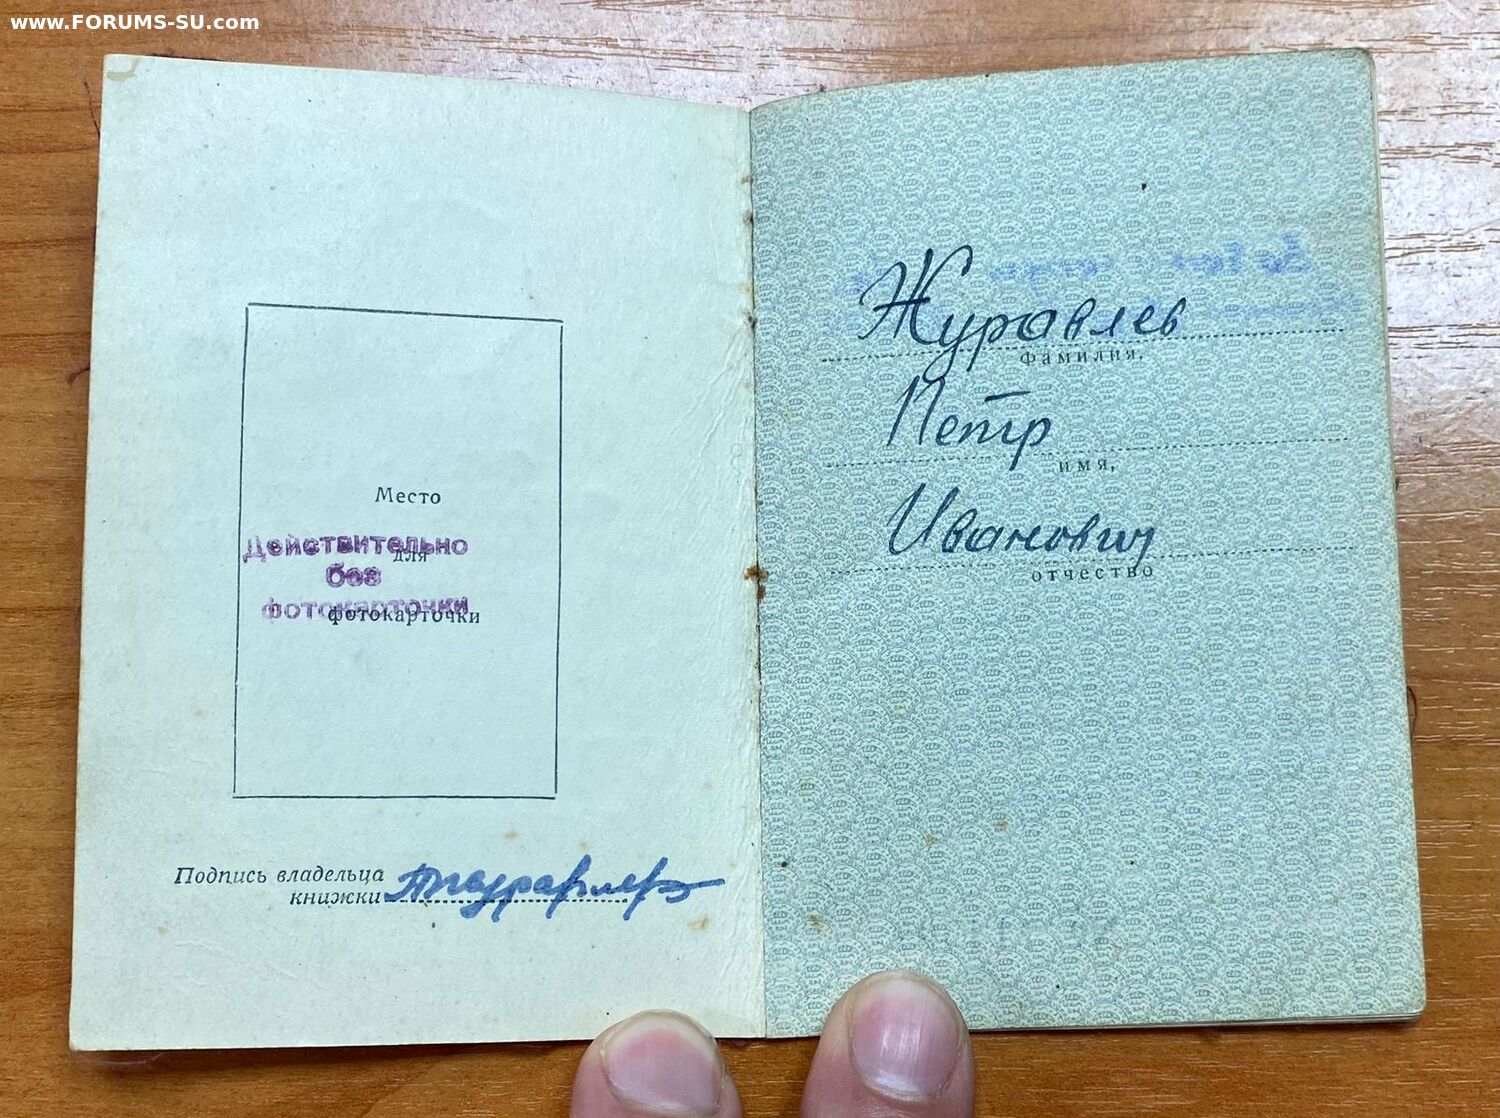 www.FORUMS-SU.com
Место
Действительно
для
без
фотокарточки
фотокарточки
Подпись владельца
книжки
Журавлев
фамилия,
Петр
имя,
Иванович
отчество